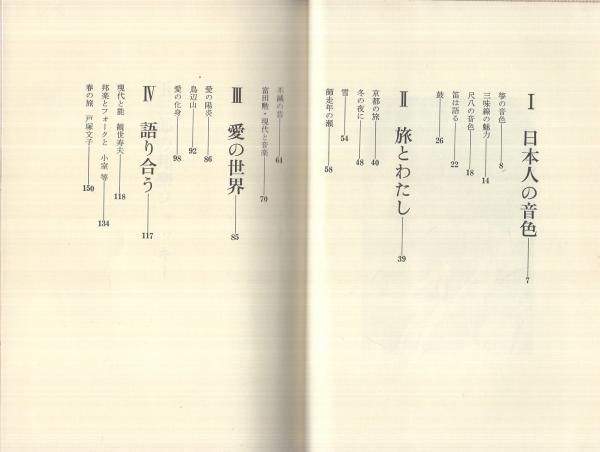 I 日本人の音色 7
箏の音色 8
三味線の魅力 14
尺八の音色 18
笛は語る 22
鼓 26
II 旅とわたし 39
京都の旅 40
冬の夜に 48
雪 54
師走年の瀬 58
不滅の音 64
富田勲・現代と音楽 70
III 愛の世界 85
愛の陽炎 86
鳥辺山 92
愛の化身 98
IV 語り合う 117
現代と能 観世寿夫 118
邦楽とフォークと 小室等 134
春の旅 戸塚文子 150